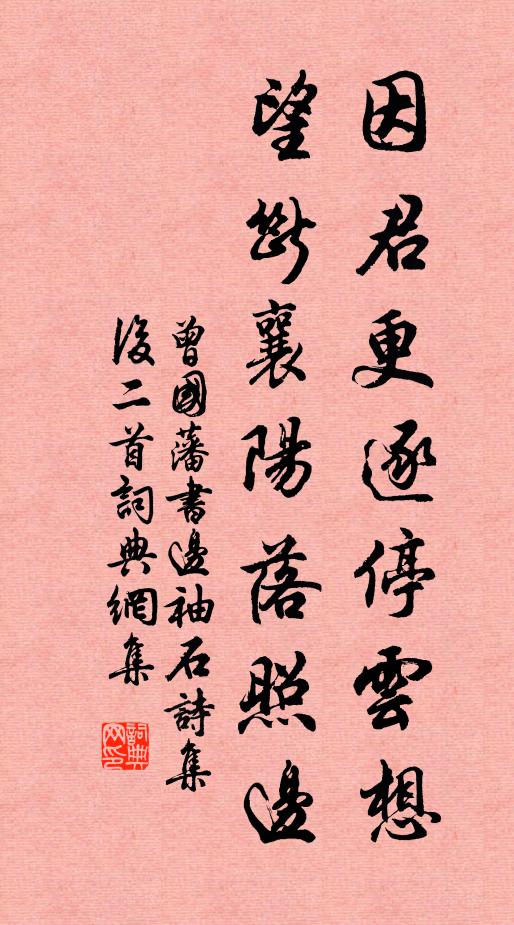 因君更逐停雲想
望斷襄陽落照邊
曾國藩書邊袖石詩集
後二首詞典網集
詞典网印